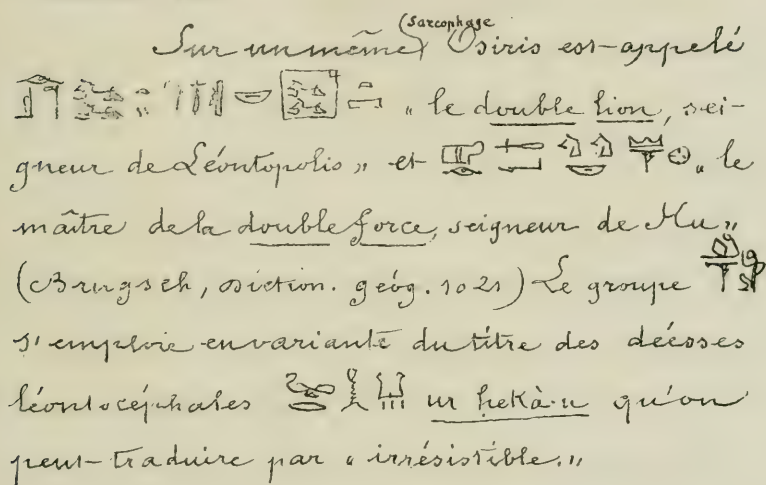 Sur un même (Sarcophage Osiris est-appelé
„ le double lion, sei-
gneur de Léontopolis „ et „ le
maître de la double force, seigneur de Hu „
(Brugsch, diction. géog. 1021) Le groupe
s'emploie en variante du titre des déesses
léontocéphales ur hekà-u qu'on
peut-traduire par „ irrésistible. „